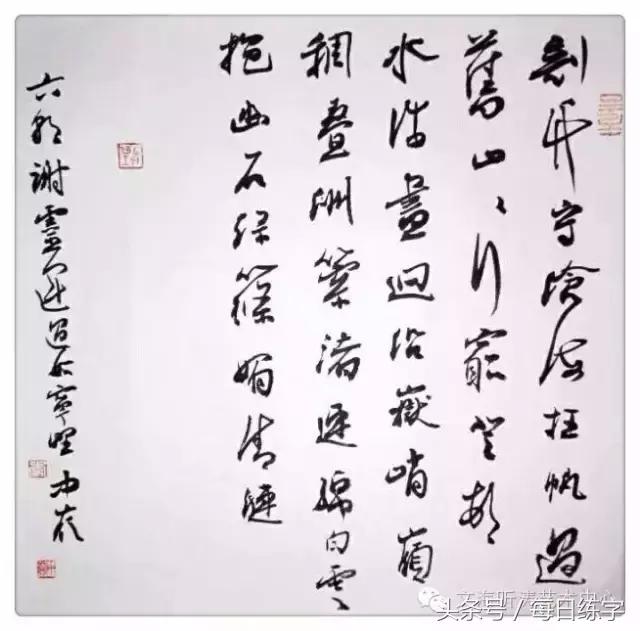 剖竹守滄海枉帆過
舊山々行窮登頓
水涉盡迴沿巖峭嶺
稠疊洲縈渚連綿白雲
抱幽石綠篠媚清漣
六朝謝靈運過始寧墅
头条号 / 每日练字